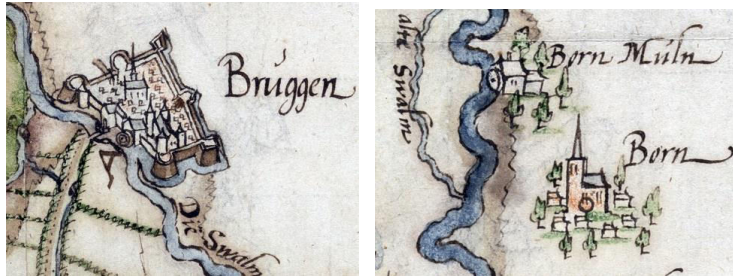 Brúggen
Die Swalm
alte Swalm
Born Múln
Born